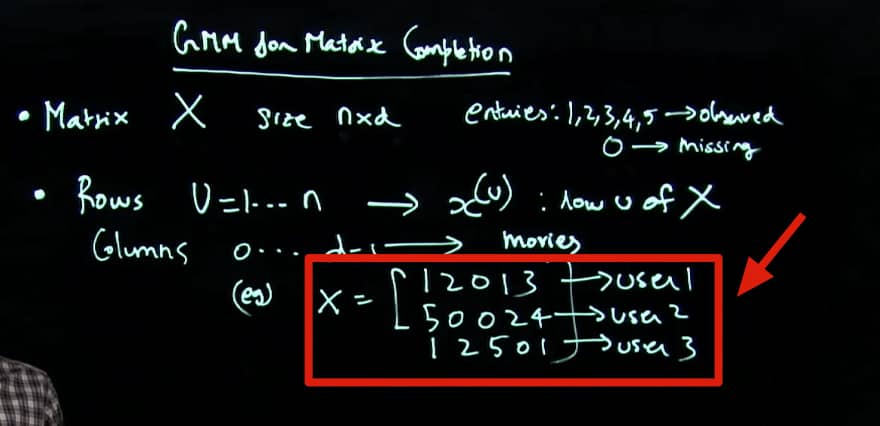 GMM for Matrix Completion
• Matrix X size n×d entries: 1,2,3,4,5 → observed
0 → missing
• Rows U=1--- n → x^(u) : row u of X
Columns 0... d-1 → movies
(eg) X = [ 1 2 0 1 3 ] → user 1
5 0 0 2 4 → user 2
1 2 5 0 1 → user 3